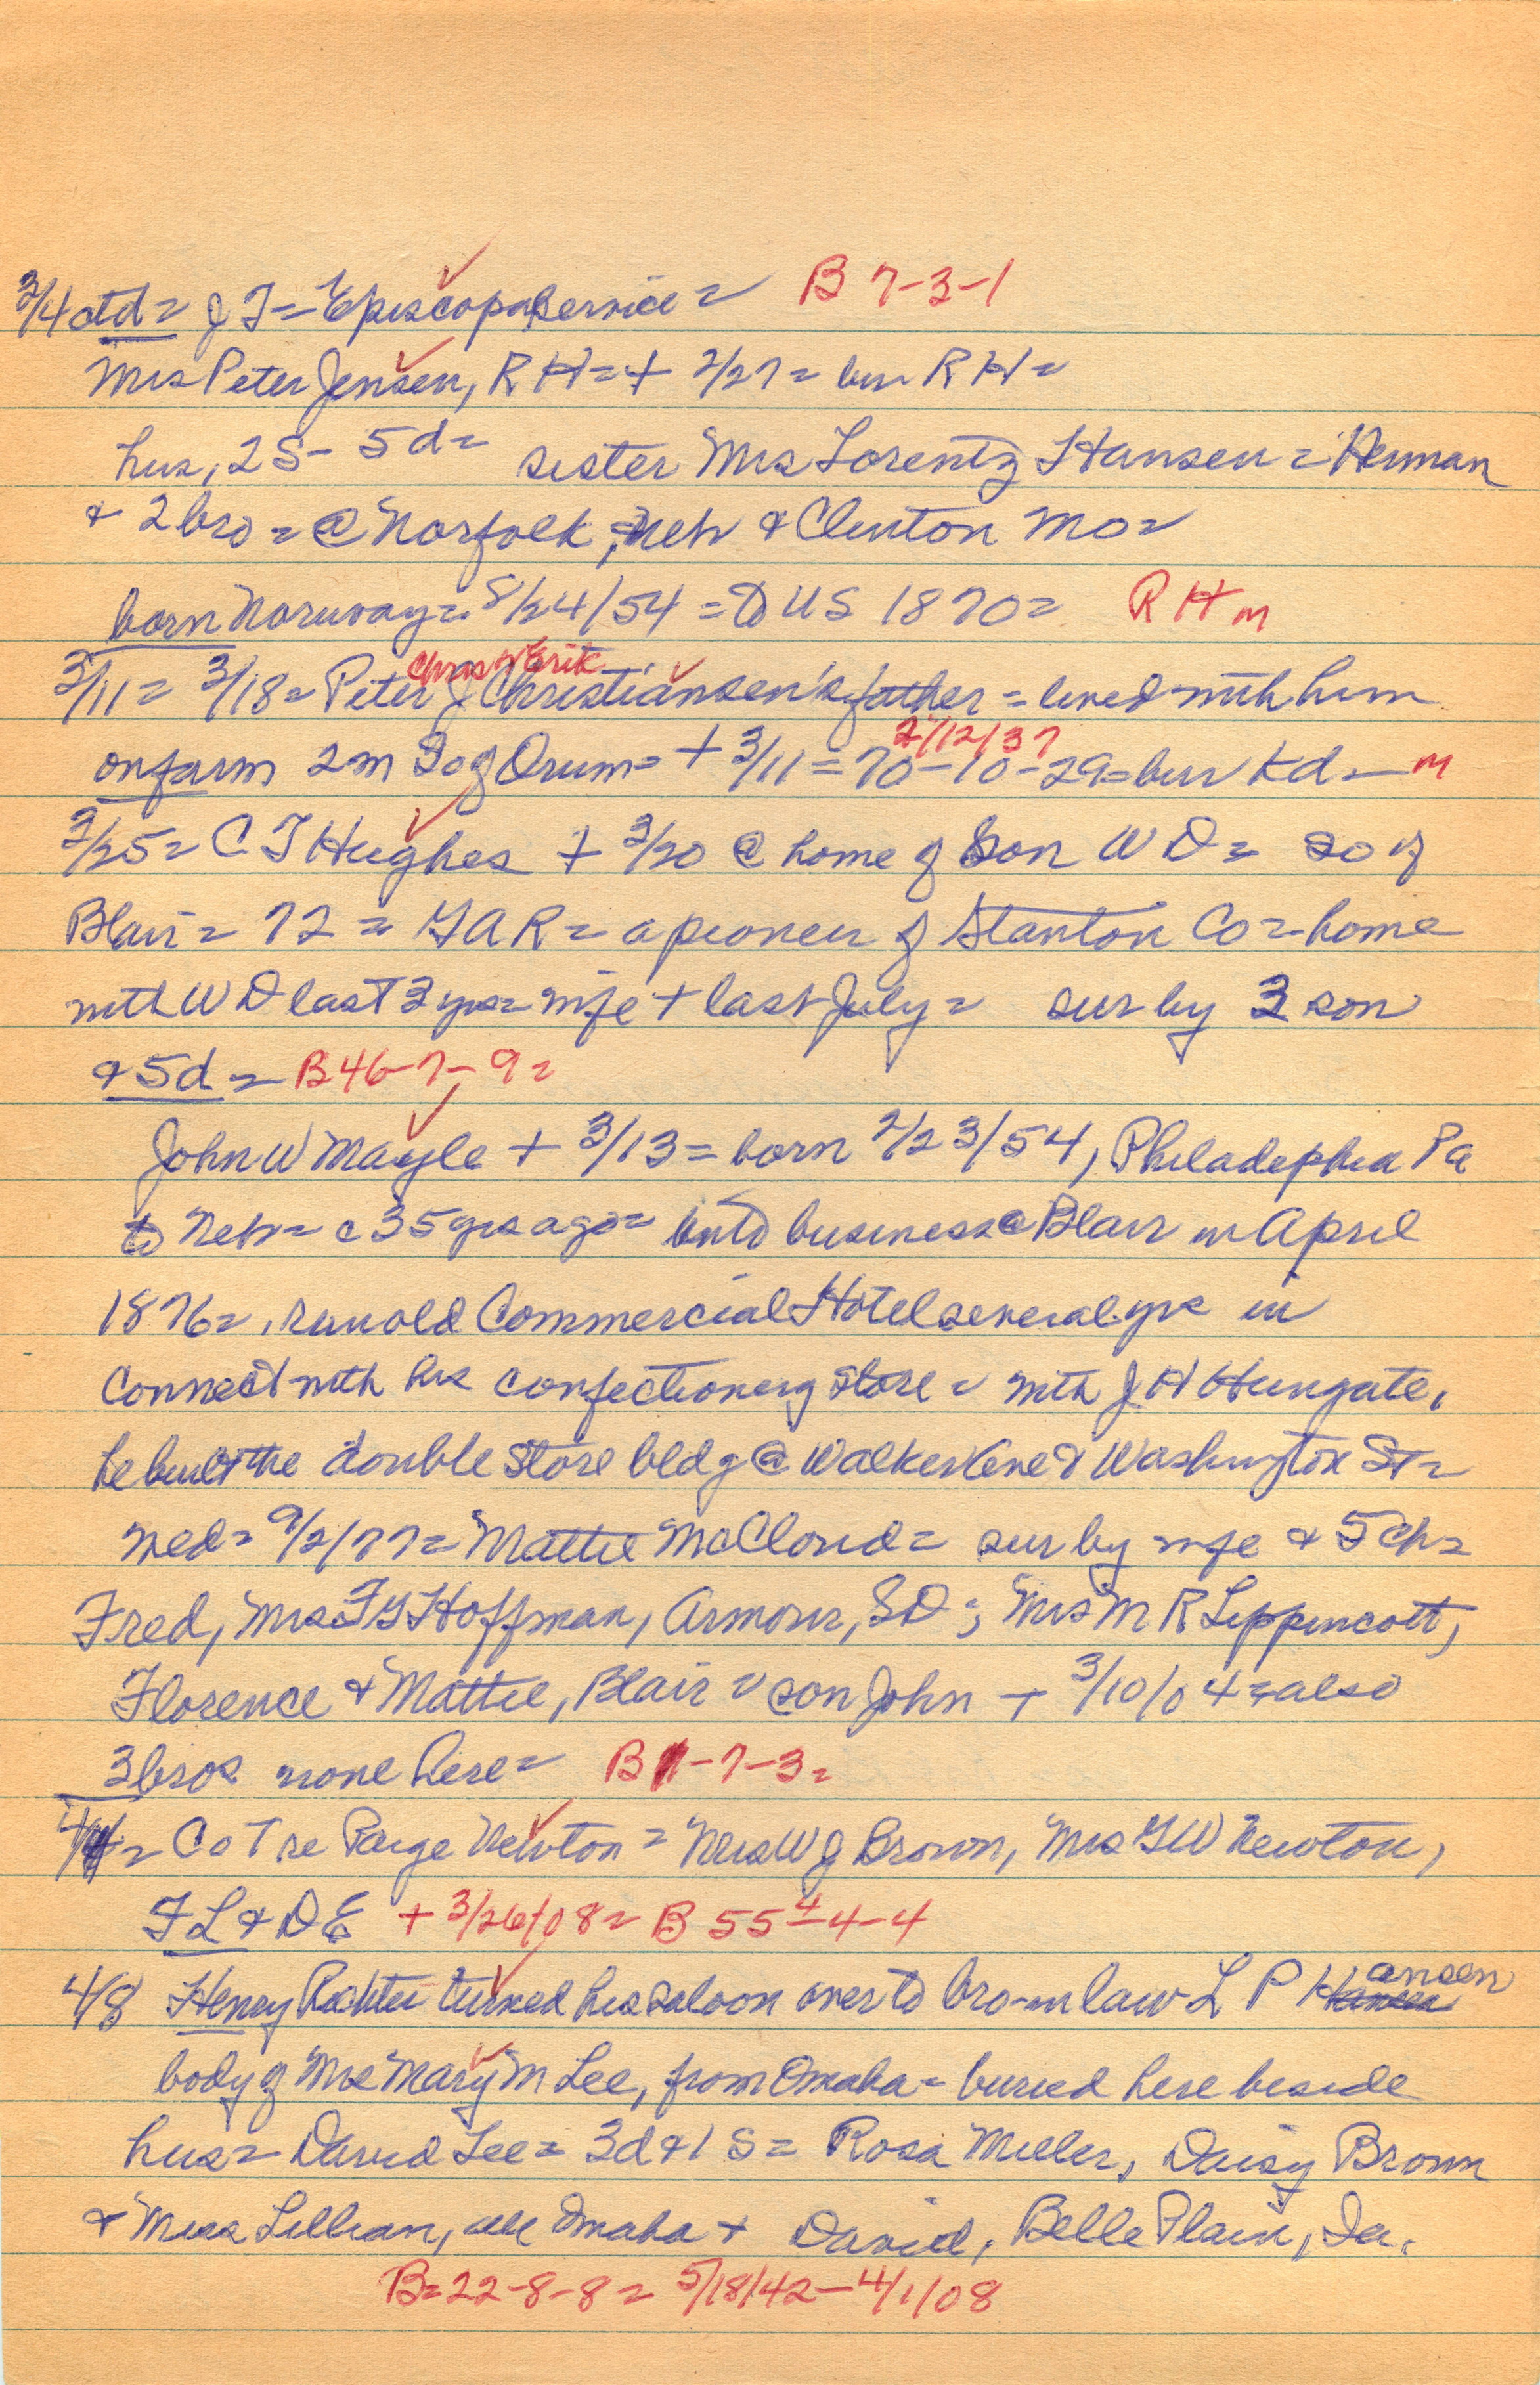 3/4 ctd = J T = Episcopal service = B 7-3-1
Mrs Peter Jensen, R H = + 2/27 = bur R H =
hus, 2 S - 5 d = sister Mrs Lorentz Hansen = Herman
& 2 bro = @ Norfolk, Neb & Clinton Mo =
born Norway = 8/24/54 = to US 1870 = R H m
Chris Erik
3/11 = 3/18 = Peter J Christiansen's father = lived with him
2/12/37
on farm 2 m So of Orum = + 3/11 = 70-10-29 = bur Kd = m
3/25 = C T Hughes + 3/20 @ home of son W D = so of
Blair = 72 = G A R = a pioneer of Stanton Co = home
with W D last 3 yrs = wife + last July = sur by 3 son
& 5 d = B 46-7-9 =
John W Mayle + 3/13 = born 2/23/54, Philadephia Pa
to Neb = c 35 yrs ago = into business @ Blair in April
1876 = , ran old Commercial Hotel several yrs in
connect with his confectionery store = with J H Hungate,
he built the double store bldg @ Walker Ave & Washington St =
wed = 9/2/77 = Mattie McCloud = sur by wife & 5 ch =
Fred, Mrs F G Hoffman, Armour, S D ; Mrs M R Lippincott,
Florence & Mattie, Blair = son John + 3/10/04 = also
3 bros none here = B -7-3 =
= C o T re Paige Newton = Mrs W J Brown, Mrs G W Newton,
F L & D E + 3/26/08 = B 55-4-4
4/8 Henry Richter turned his saloon over to bro-in law L P Hansen
body of Mrs Mary M Lee, from Omaha = buried here beside
hus = David Lee = 3 d & 1 S = Rosa Miller, Daisy Brown
& Miss Lillian, all Omaha + David, Belle Plain, Ia.
B = 22-8-8 = 5/18/42 - 4/1/08